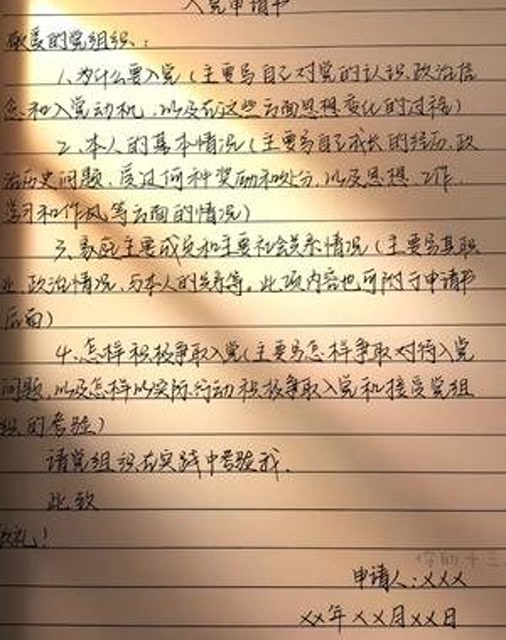 入党申请书
敬爱的党组织：
1、为什么要入党（主要写自己对党的认识、政治信
念和入党动机，以及在这些方面思想变化的过程）
2、本人的基本情况（主要写自己成长的经历、政
治历史问题、受过何种奖励和处分，以及思想、工作、
学习和作风等方面的情况）
3、家庭主要成员和主要社会关系情况（主要写其职
业、政治情况、与本人的关系等。此项内容也可附于申请书
后面）
4、怎样积极争取入党（主要写怎样争取对待入党
问题，以及怎样以实际行动积极争取入党和接受党组
织的考验）
请党组织在实践中考验我.
此致
敬礼！
申请人：×××
××年××月××日